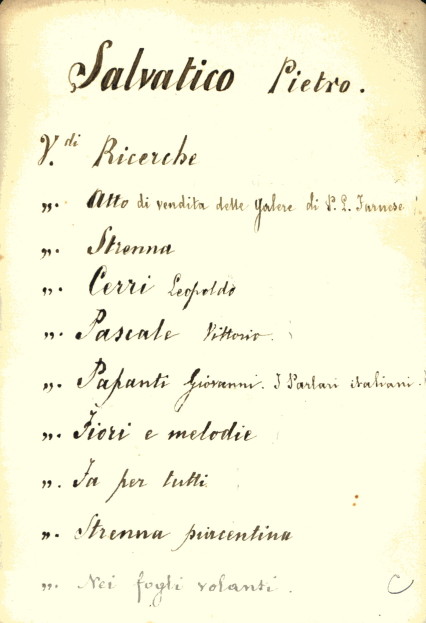 Salvatico Pietro.
V.di Ricerche
„. Atto di vendita delle Galere di P. L. Farnese
„. Strenna
„. Cerri Leopoldo
„. Pascale Vittorio.
„. Papanti Giovanni. I Parlari italiani.
„. Fiori e melodie
„. Fa per tutti
„. Strenna piacentina
„. Nei fogli volanti.
C